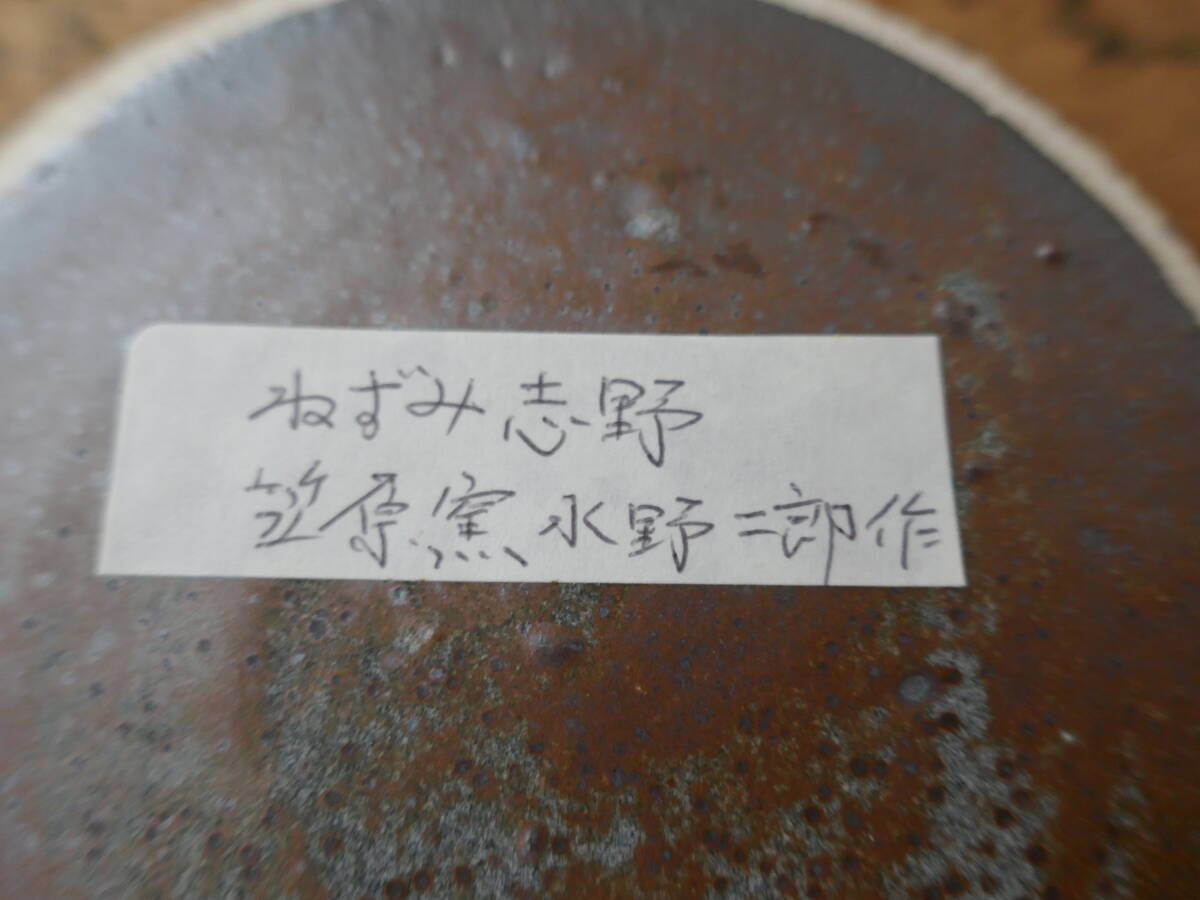 ねずみ志野
笠原窯 水野二郎作